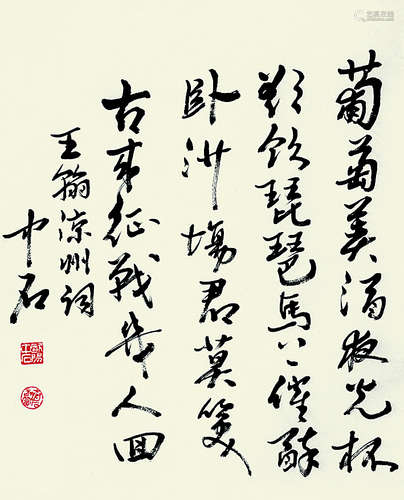 葡萄美酒夜光杯
欲飲琵琶馬上催醉
卧沙場君莫笑
古来征戰幾人回
王翰涼州詞
中石